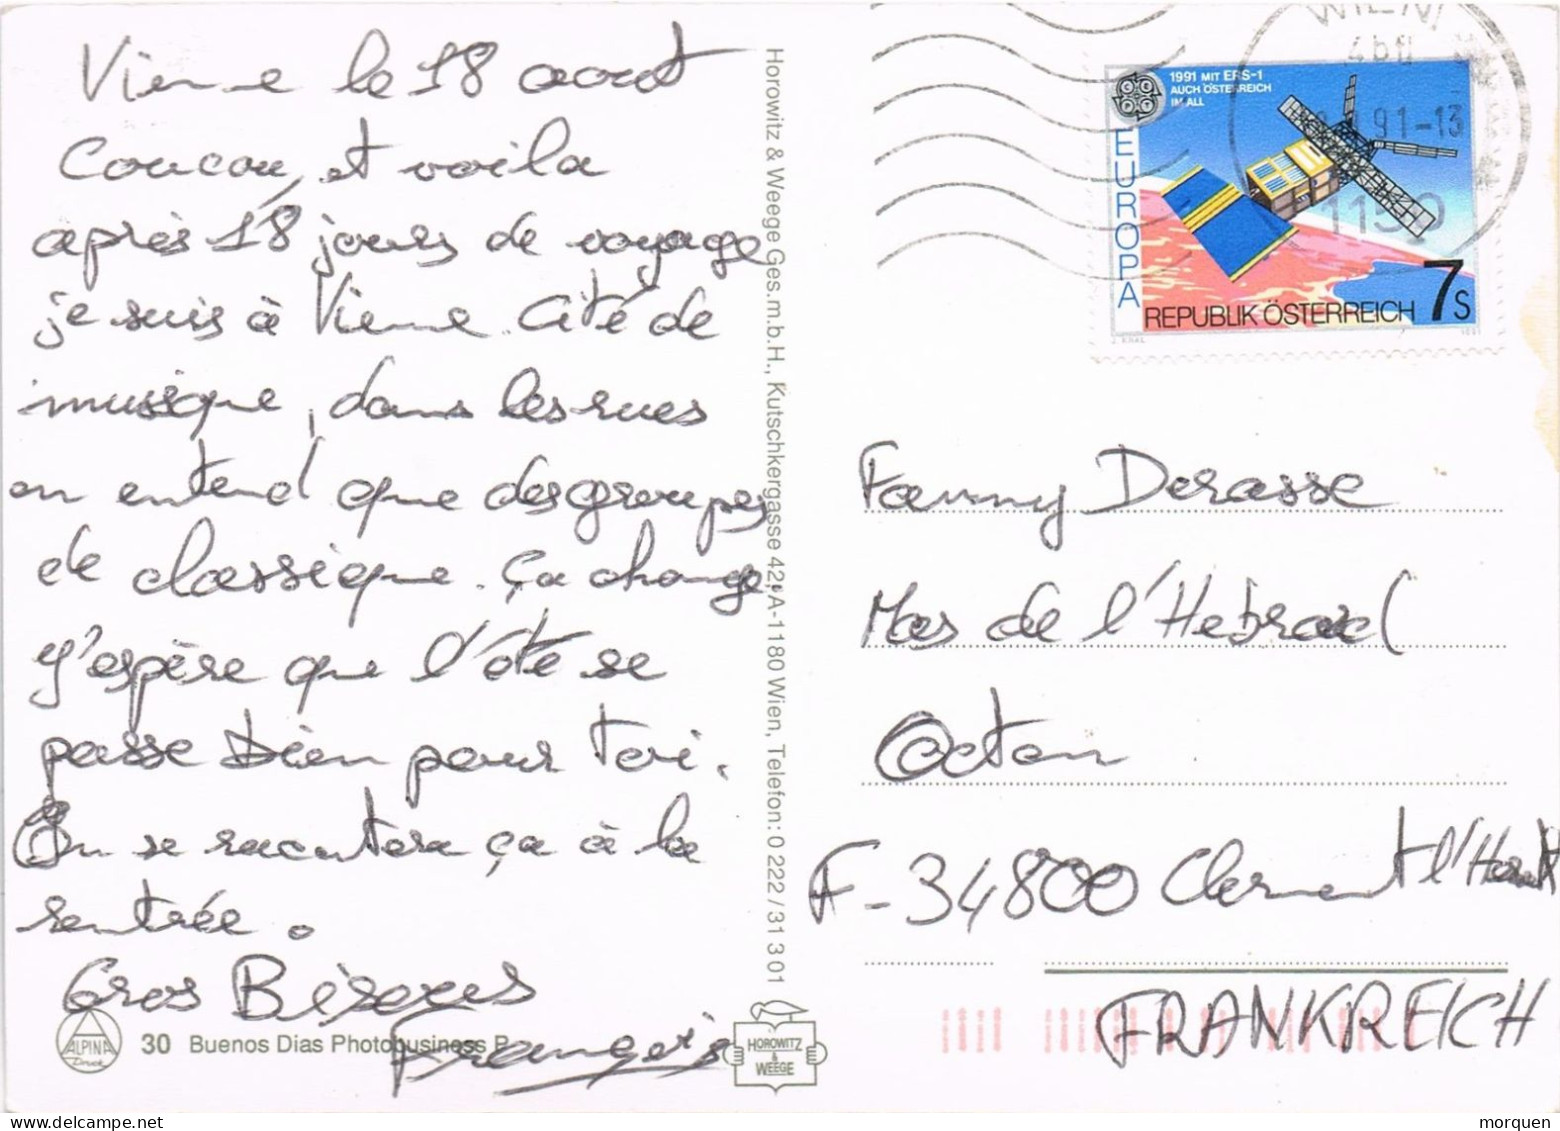 Vienne le 18 aout
Coucou, et voila
après 18 jours de voyage
je suis à Vienne. Cité de
musique, dans les rues
on entend que des groupes
de classique. ça change.
J'espère que l'été se
passe bien pour toi.
On se racontera ça à la
rentrée.
Gros Bisous
François
ALPINA
Druck
30 Buenos Dias Photobusiness P
Horowitz & Weege Ges.m.b.H., Kutschkergasse 42, A-1180 Wien, Telefon: 0 222 / 31 3 01
HOROWITZ
&
WEEGE
WIEN
91-13
1150
1991 MIT ERS-1
AUCH ÖSTERREICH
IM ALL
EUROPA
REPUBLIK ÖSTERREICH 7S
J. KRAL
Fanny Derasse
Mas de l'Hebrard
Octon
F-34800 Clermont l'Herault
FRANKREICH
morquen